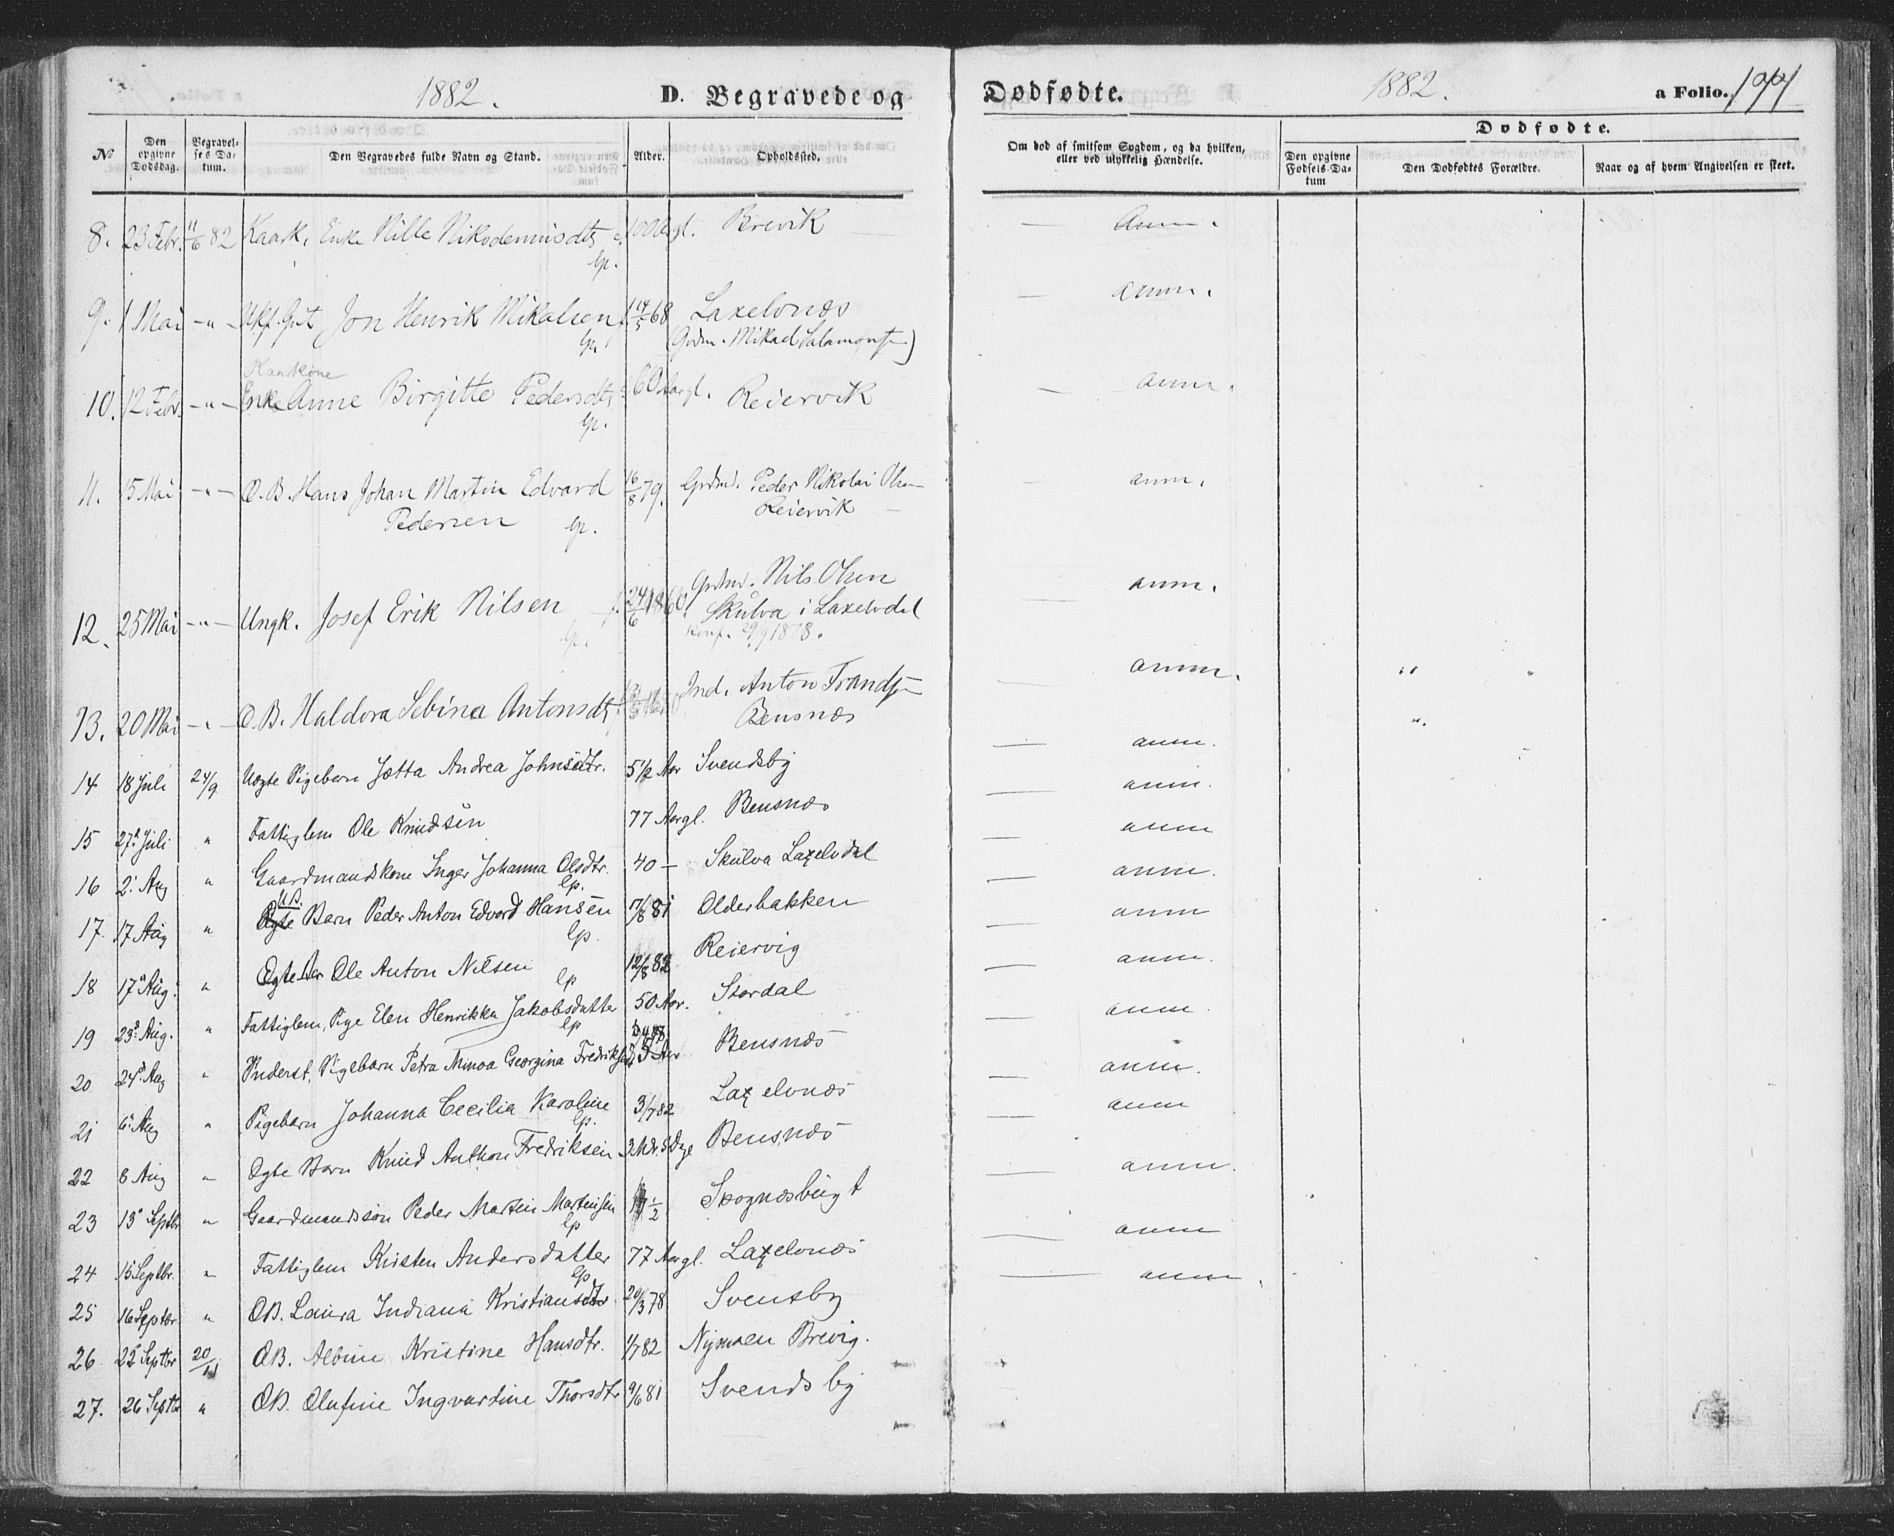 1882. D. Begravede og Dødfødte. 1882. a Folio. 177
Dødfødte.
№ Den opgivne Dødsdag. Begravelses Datum. Den Begravedes fulde Navn og Stand. Alder. Opholdssted. Om død af smitsom Sygdom, og da hvilken, eller ved ulykkelig Hændelse. Den opgivne Fødsels-Datum Den Dødfødtes Forældre. Naar og af hvem Angivelsen er skeet.
8. 23 Febr. 11/6 82 Kaark. Enke Nille Nikodemusdtr Brevik — Anm.
lp.
9. 1 Mai — " — Ukf. Gut Jon Henrik Mikalsen f. 14/5 68 Laxelvnæs — anm.
lp. (Grdm. Mikael Salamons)
Kaarkone
10. 12 Febr. — " — Enke Anne Birgitte Pedersdtr 60 Aargl. Reiervik — anm.
lp.
11. 15 Mai — " — Æ. B. Hans Johan Martin Edvard 16/8 79. Grdmd. Peder Nikolai Olsen — anm.
Pedersen lp. Reiervik —
12. 25 Mai — " — Ungk. Josef Erik Nilsen — f. 24/6 1860 Grdmd. Nils Olsen anm.
lp. Skulva i Laxelvdal
Konf. 29/9 1878.
13. 20 Mai — " — Æ. B. Haldora Sebina Antonsdtr Ind. Anton Frandsen — anm. "
Bensnæs "
14 18 Juli 24/9 Uægte Pigebarn Jætta Andrea Johnsdtr. 5 1/2 Aar Svendsby — anm.
15 27 Juli " Fattiglem Ole Knudsen 77 Aargl. Bensnæs — anm.
16 2. Aug " Gaardmandskone Inger Johanna Olsdtr. 40 — Skulva Laxelvdal — anm
lp.
U.B.
17. 17 Aug " Ægte Barn Peder Anton Edvard Hansen 7/8 81 Olderbakken — anm.
lp.
18 17 Aug. " Ægte Bar Ole Anton Nilsen 12/8 82 Reiervig — anm
lp
19 23. Aug. " Fattiglem, Pige Elen Henrikka Jakobsdatter 50 Aar. Stordal — anm.
lp
20 24. Aug " Underst. Pigebarn Petra Minoa Georgina Fredriksd 5 Aar Bensnæs — anm.
21 6. Aug " Pigebarn Johanna Cecilia Karoline 3/7 82 Laxelvnæs — anm.
lp.
22 8 Aug " Ægte Barn Knud Anthon Fredriksen Bensnæs — anm
23 13. Septbr " Gaardmandssøn Peder Martin Martensen Skognæsbugt — anm.
lp
24 15 Septbr. " Fattiglem Kirsten Andersdatter 77 Aargl. Laxelvnæs — anm
lp
25 16 Septbr. " ÆB. Laura Indiana Kristiansdtr 20/3 78 Svensby — anm.
26 22 Septbr 20/11 ÆB. Albine Kristine Hansdtr. 1/7 82 Nymoen Brevig.
27. 26 Septbr " ÆB. Olufine Ingvardine Thorsdtr 9/6 81 Svendsby